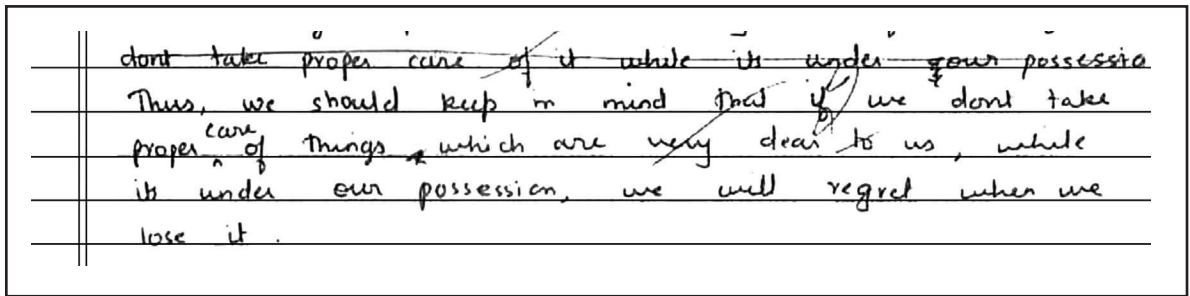 dont take proper care of it while its under our possessio
Thus, we should keep in mind that if we dont take
proper care of things which are very dear to us, while
its under our possession, we will regret when we
lose it.